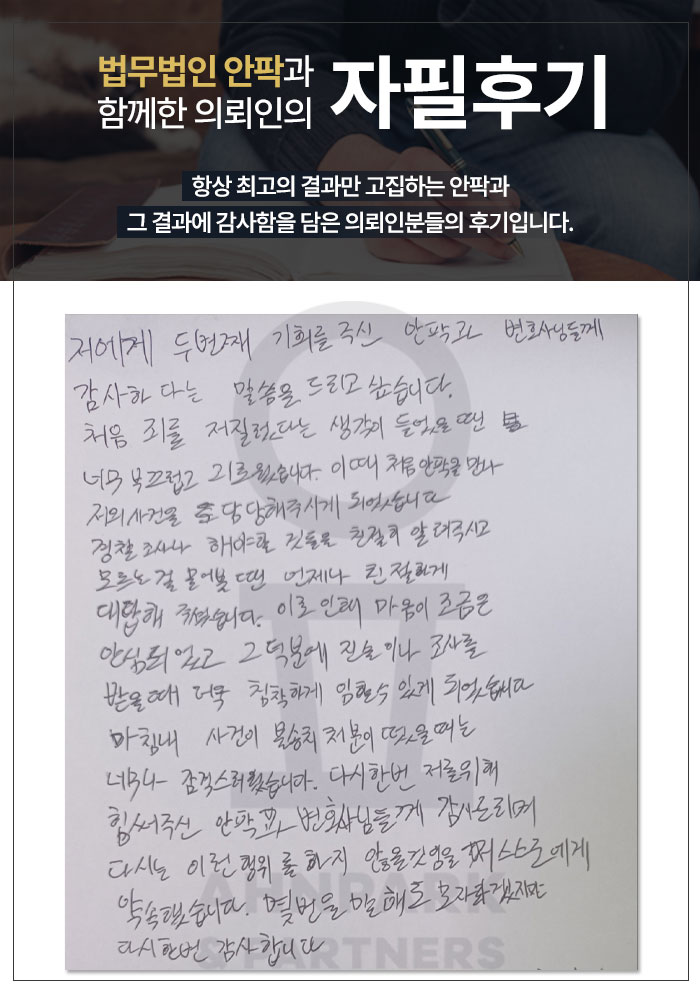 법무법인 안팍과
함께한 의뢰인의
자필후기
항상 최고의 결과만 고집하는 안팍과
그 결과에 감사함을 담은 의뢰인분들의 후기입니다.
저에게 두번째 기회를 주신 안팍과 변호사님들께
감사하다는 말씀을 드리고 싶습니다.
처음 죄를 저질렀다는 생각이 들었을 땐
너무 부끄럽고 괴로웠습니다. 이때 처음 안팍을 만나
저의 사건을 담당해주시게 되었습니다
경찰 조사나 해야할 것들을 친절히 알려주시고
모르는 걸 물어볼 땐 언제나 친절하게
대답해 주셨습니다. 이로 인해 마음이 조금은
안심되었고 그 덕분에 진술이나 조사를
받을 때 더욱 침착하게 임할 수 있게 되었습니다
마침내 사건이 불송치 처분이 떴을 때는
너무나 감격스러웠습니다. 다시한번 저를 위해
힘써주신 안팍과 변호사님들께 감사드리며
다시는 이런 행위를 하지 않을것임을 스스로에게
약속했습니다. 몇번을 말해도 모자라겠지만
다시한번 감사합니다
AHNPARK
& PARTNERS